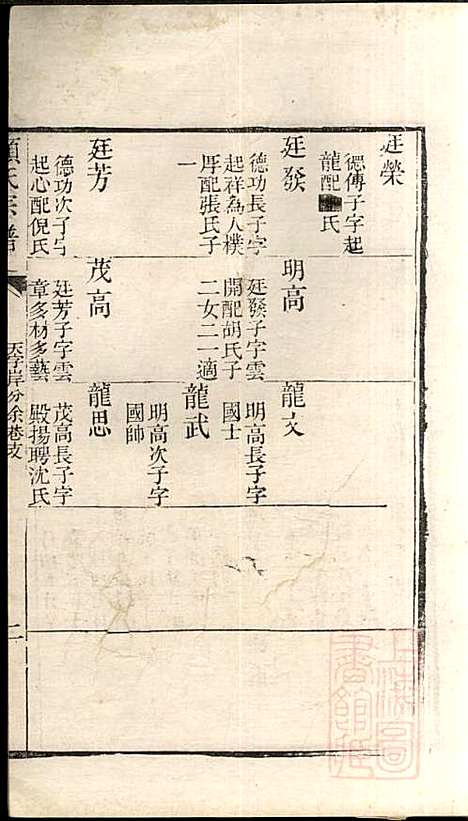 廷榮
德傅子字起
龍配氏
廷發
德功長子字
起祥為人樸
厚配張氏子
一
廷芳
德功次子字
起心配倪氏
明高
廷發子字雲
開配胡氏子
二女二一適
茂高
廷芳子字雲
章多材多藝
龍文
明高長子字
國士
龍武
明高次子字
國帥
龍思
茂高長子字
殿揚聘沈氏
氏宗譜
天字岸分徐巷支
二
上海圖
書館藏